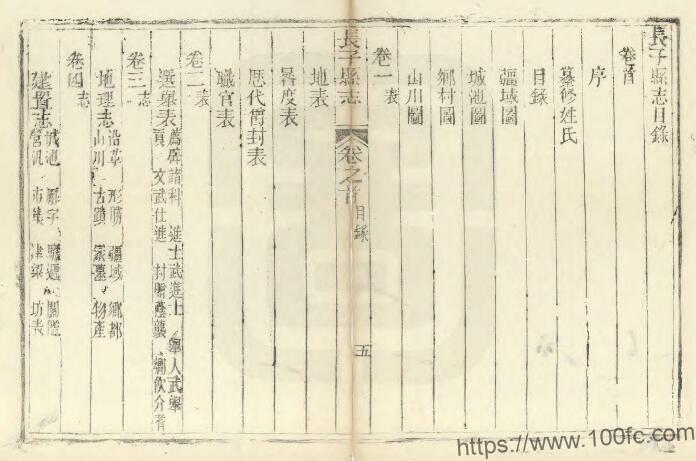 長子縣志目錄
卷首
序
纂修姓氏
目錄
疆域圖
城池圖
鄉村圖
山川圖
卷一 表
長子縣志 卷之首 目錄 五
地表
晷度表
歷代簡封表
職官表
卷二 表
選舉表 薦辟諸科 進士武進士 舉人武舉
貢 文武仕進 封贈蔭襲 鄉飲介耆
卷三 志
地理志 沿革 形勝 疆域 鄉都
山川 古蹟 冢墓 物產
卷四 志
建置志 城池 廨宇 關隘
營汛 市集 津梁 坊表
https://www.100fc.com